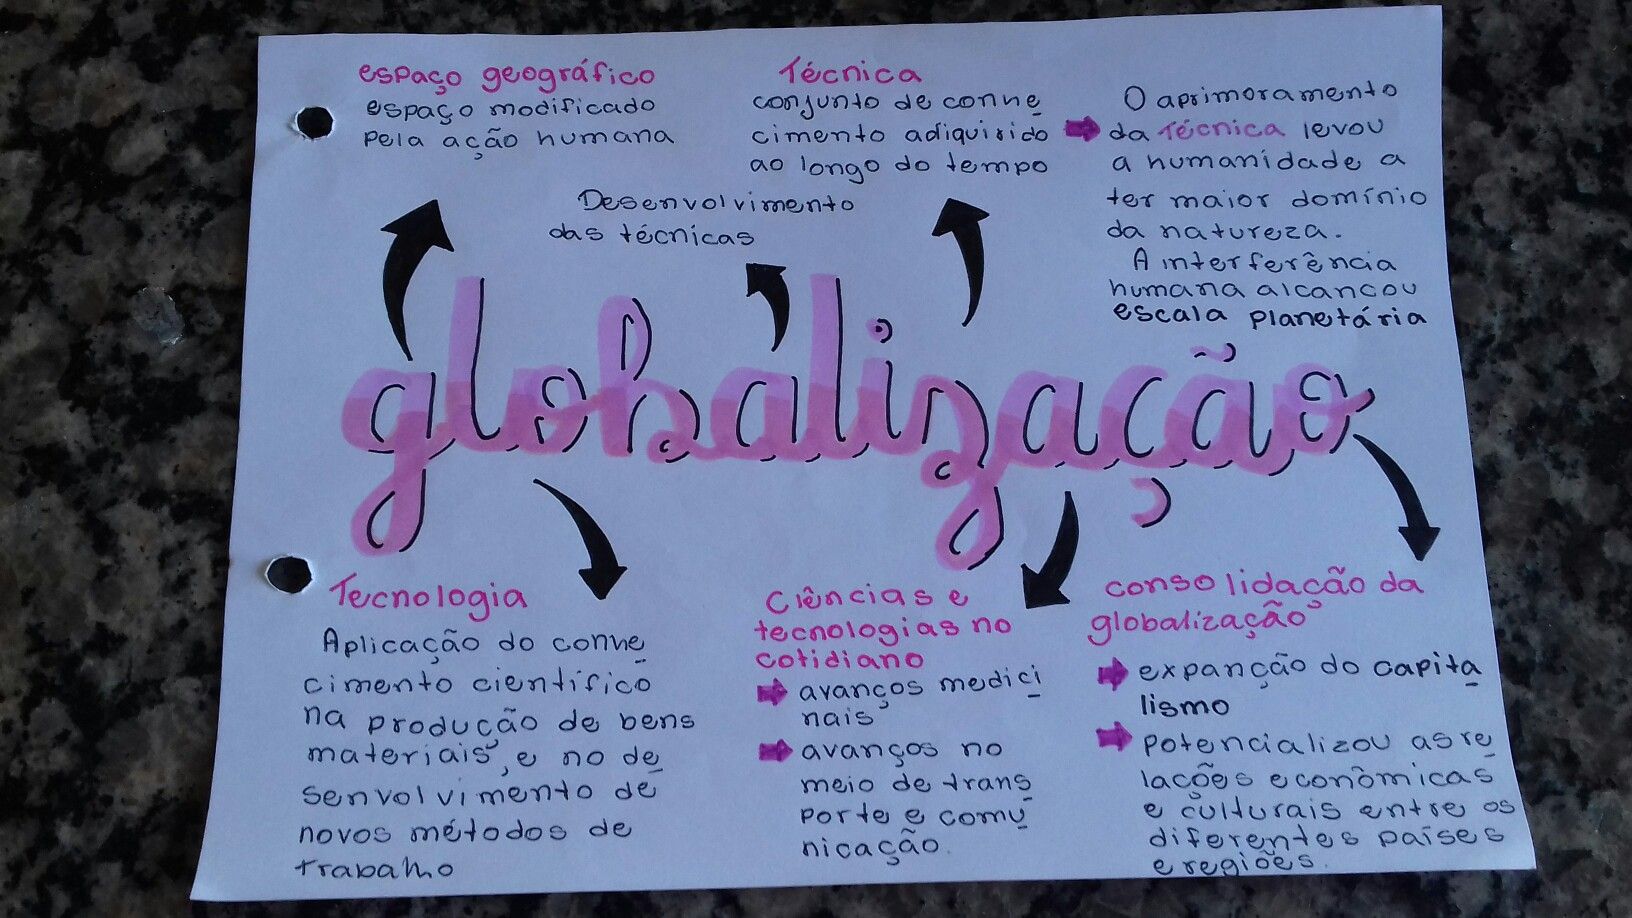 espaço geográfico
espaço modificado
pela ação humana
Técnica
conjunto de conhe
cimento adiquirido
ao longo do tempo
O aprimoramento
da Técnica levou
a humanidade a
ter maior domínio
da natureza.
A interferência
humana alcançou
escala planetária
Desenvolvimento
das técnicas
globalização
Tecnologia
Aplicação do conhe
cimento científico
na produção de bens
materiais, e no de
senvolvimento de
novos métodos de
trabalho
Ciências e
tecnologias no
cotidiano
avanços medici
nais
avanços no
meio de trans
porte e comu
nicação.
consolidação da
globalização
expanção do capita
lismo
potencializou as re
lações econômicas
e culturais entre os
diferentes países
e regiões.